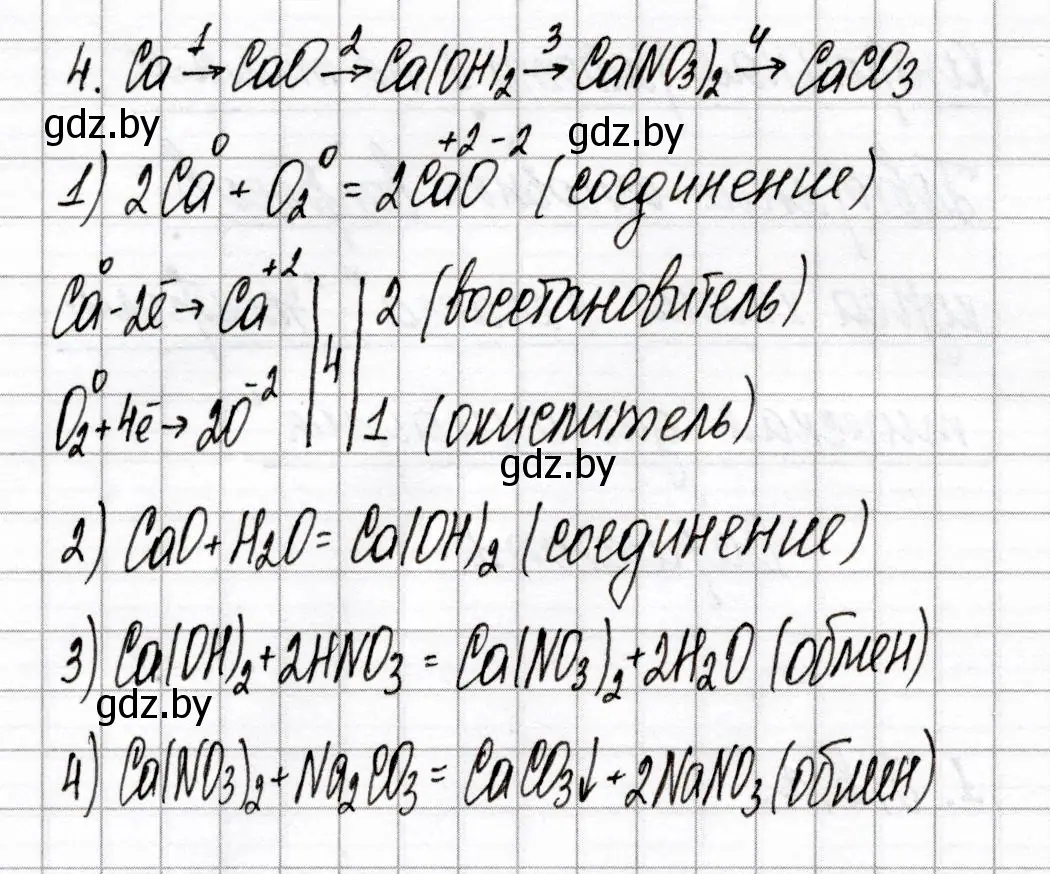 4. Ca →¹ CaO →² Ca(OH)₂ →³ Ca(NO₃)₂ →⁴ CaCO₃
gdz.by gdz.by
1) 2Ca⁰ + O₂⁰ = 2Ca⁺²O⁻² (соединение)
Ca⁰ - 2ē → Ca⁺² | | 2 (восстановитель)
|4|
O₂⁰ + 4ē → 2O⁻² | | 1 (окислитель)
gdz.by
2) CaO + H₂O = Ca(OH)₂ (соединение)
3) Ca(OH)₂ + 2HNO₃ = Ca(NO₃)₂ + 2H₂O (обмен)
gdz.by
4) Ca(NO₃)₂ + Na₂CO₃ = CaCO₃↓ + 2NaNO₃ (обмен)